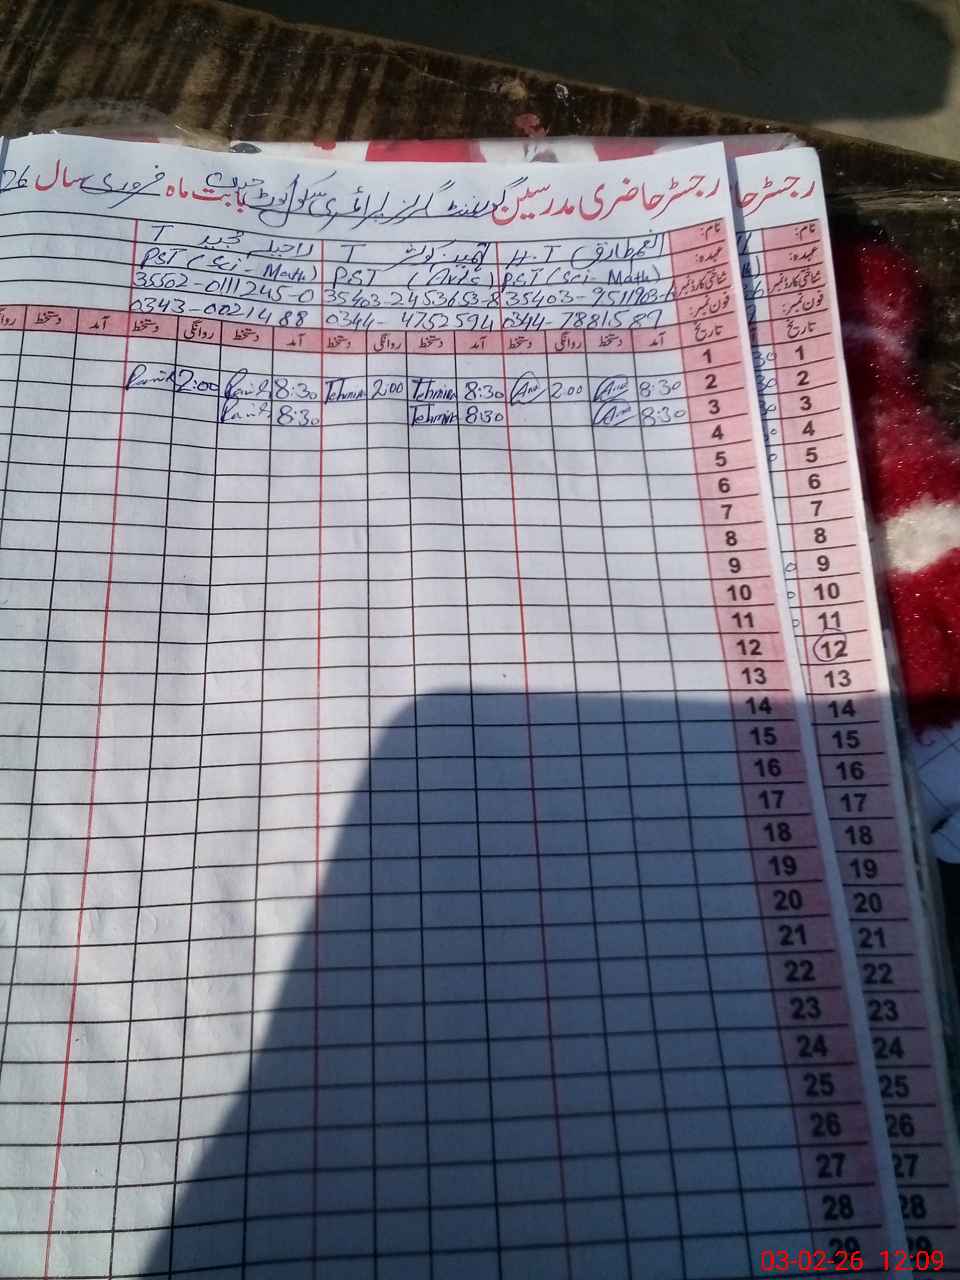 رجسٹر حاضری مدرسین گورنمنٹ گرلز پرائمری سکول بابت ماہ فروری سال 26
رجسٹر حا
نام: H.T T راحیلہ مجید T
عہدہ: PST (Sci-Math) PST (Arts) PST (Sci-Math)
شناختی کارڈ نمبر 35403-9511903-6 35403-2453653-8 35502-0111245-0
فون نمبر: 0344-7881589 0344-4752594 0343-0021488
تاریخ آمد دستخط روانگی دستخط آمد دستخط روانگی دستخط آمد دستخط روانگی دستخط آمد دستخط
1 1
2 8:30 2:00 8:30 Tehmina 2:00 Tehmina 8:30 2:00 2
3 8:30 8:30 Tehmina 8:30 3
4 4
5 5
6 6
7 7
8 8
9 9
10 10
11 11
12 12
13 13
14 14
15 15
16 16
17 17
18 18
19 19
20 20
21 21
22 22
23 23
24 24
25 25
26 26
27 27
28 28
29 29
03-02-26 12:09